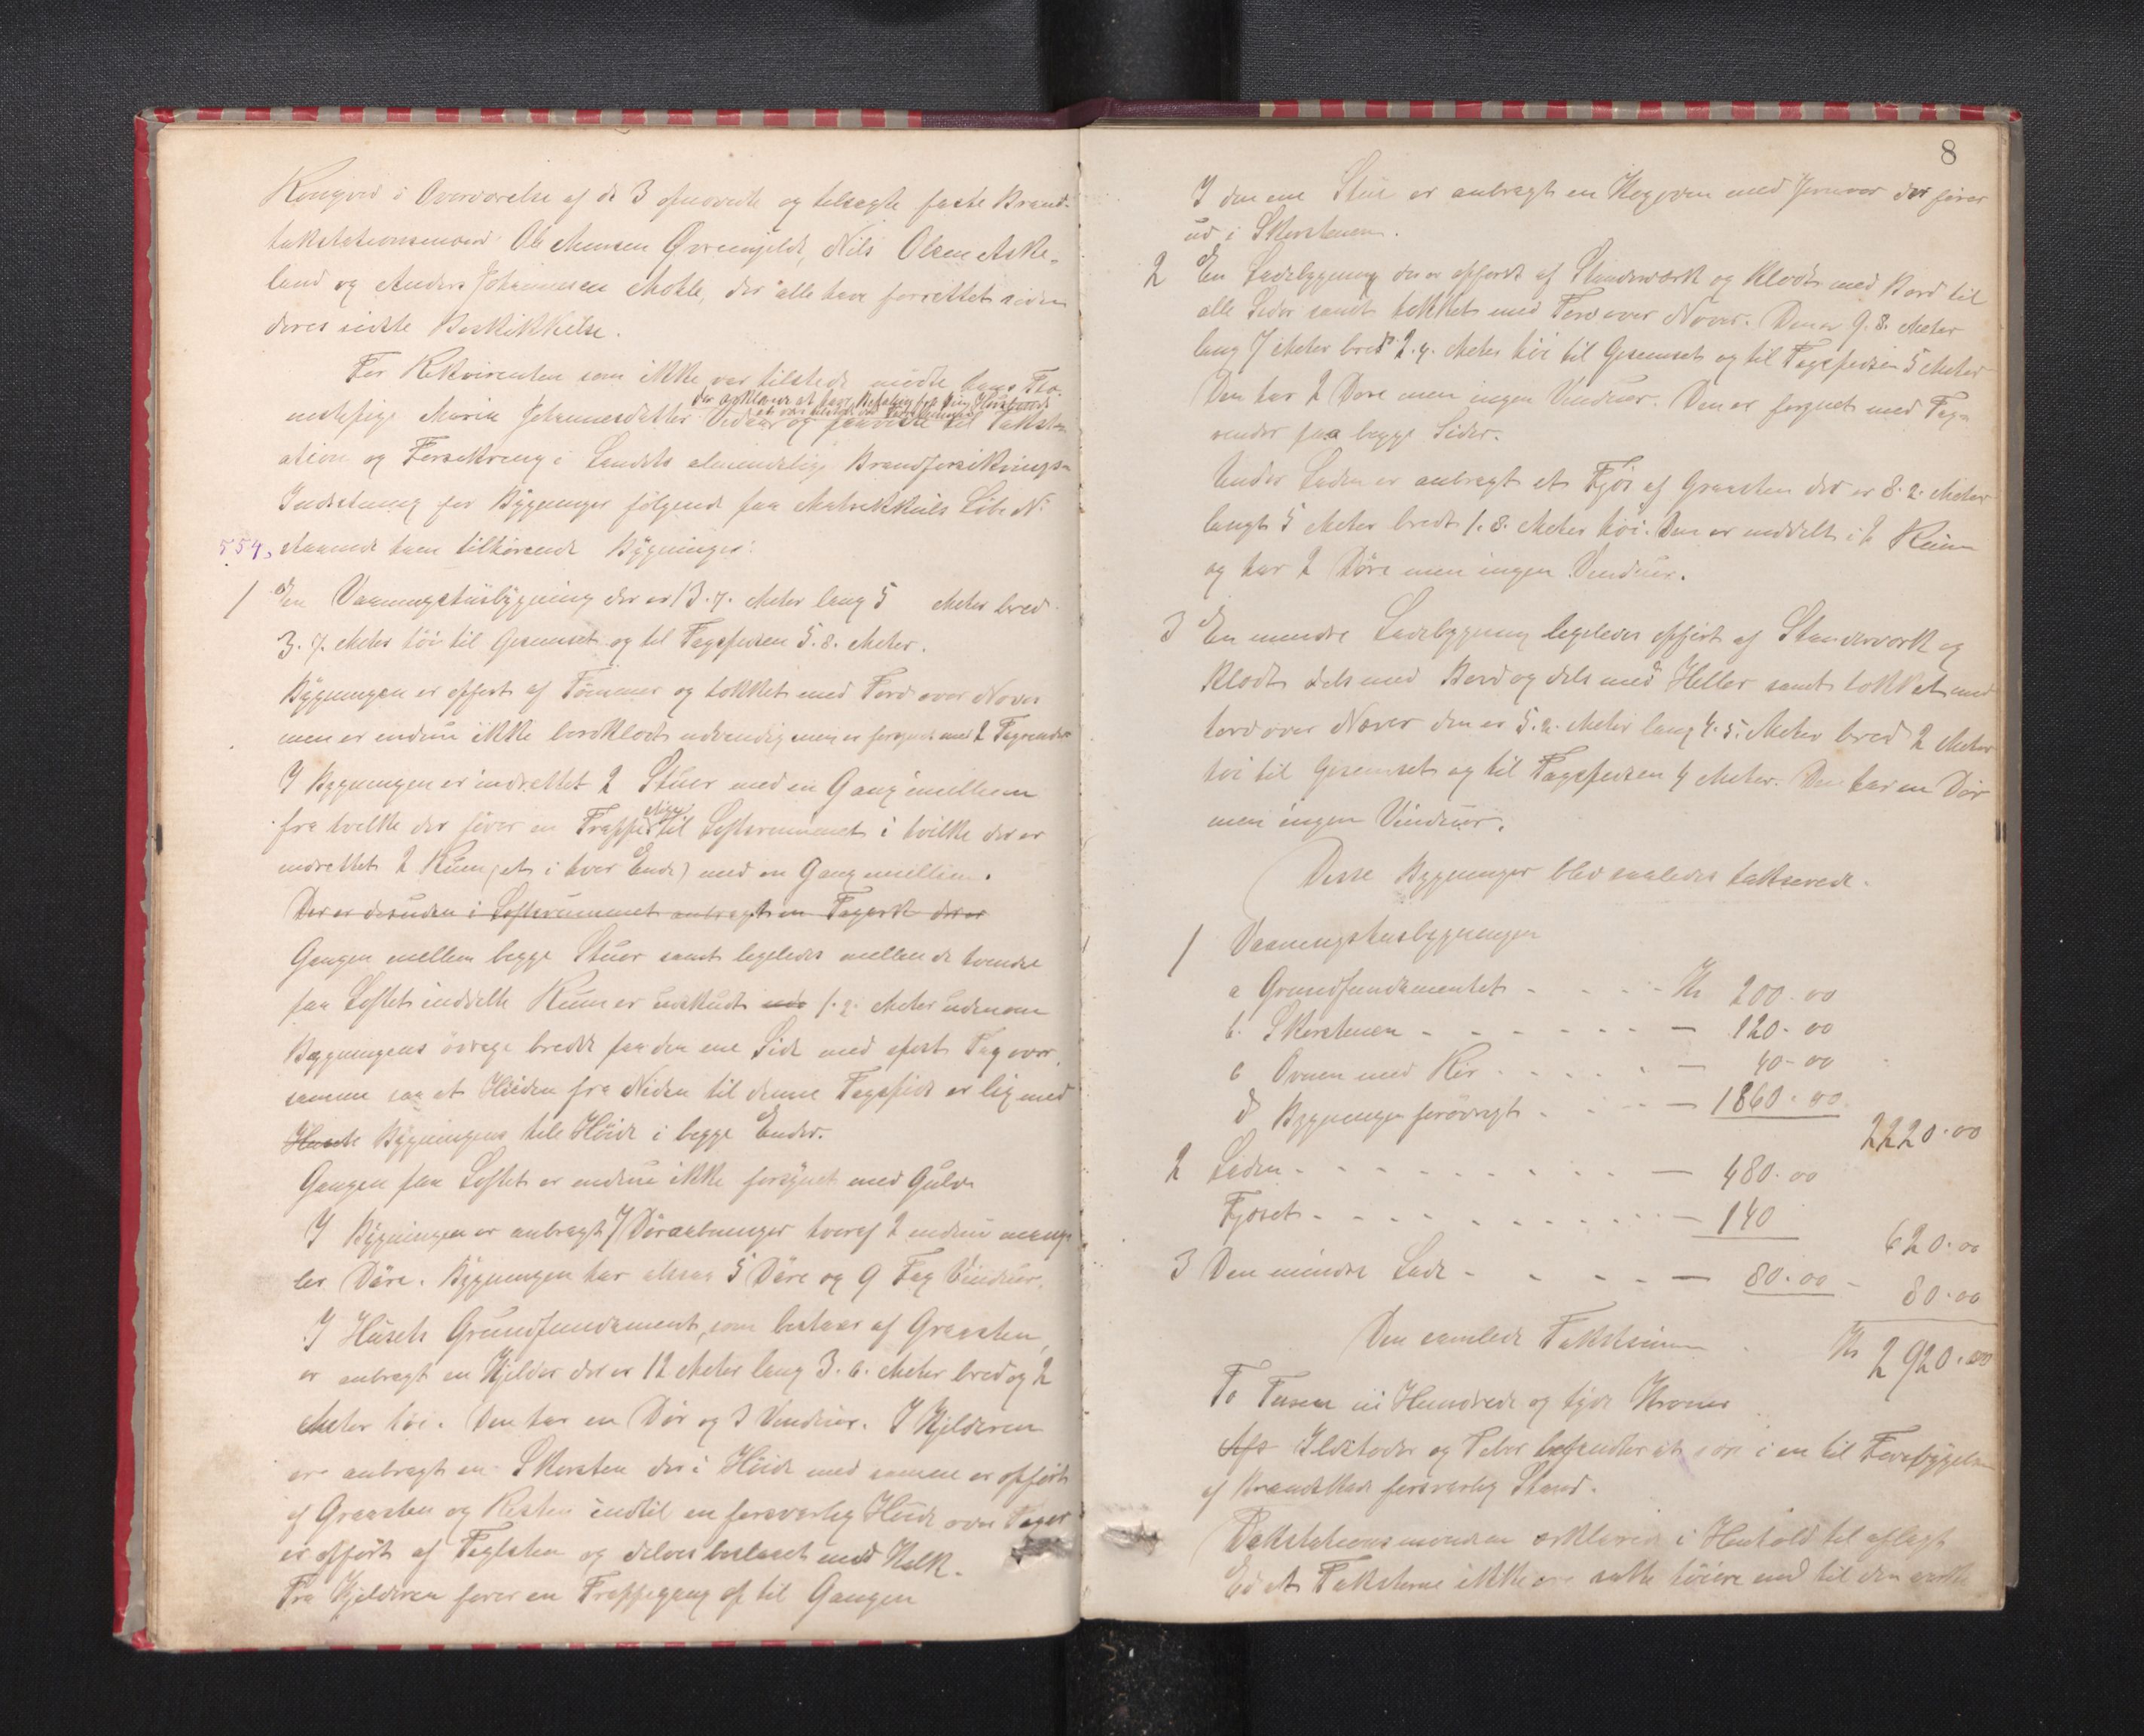 Kongsvid i Overværelse af de 3 opnævnte og tilsagte faste Brand-
takstationsmænd Ole Monsen Øvreeide, Nils Olsen Aske-
land og Anders Johannesen Mokle, der alle have forrettet siden
deres sidste Beskikkelse.
For Rekvirenten som ikke var tilstede mødte hans
der erklærede at have Befaling fra sin
Maria Johannesdatter og paaviste til Takst-
ation og Forsikring i Landets almindelige Brandforsikrings-
Indretning for Bygninger følgende paa Matrikkuls Løbe No
554, staaende ham tilhørende Bygninger:
1 En Vaaningshusbygning der er 13.7. Meter lang 5 Meter bred
3.7. Meter höi til Gesemset og til Tagspidsen 5.8. Meter.
Bygningen er opført af Tømmer og tækket med Torv over Never
men er endnu ikke bordklædt udvendig men er forsynet med 2 Tagrender
I Bygningen er indrettet 2 Stuer med en Gang imellem
fra hvilke der fører en Trappe til Loftsrummet i hvilke der er
indrettet 2 Rum (et i hver Ende) med en Gang imellem.
Der er desuden i Loftsrummet anbragt en Tagark der er
Gangen mellem begge Stuer samt ligeledes mellem de tvende
paa Loftet inddelte Rum er udskudt 1.2. Meter udenom
Bygningens övrige bredde paa den ene Side med Tag over
samme saa at Höiden fra Neden til denne Tagspids er lig med
Husets Bygningens hele Höide i begge Ender.
Gangen paa Loftet er endnu ikke forsynet med Gulv
I Bygningen er anbragt 7 Döraabninger hvoraf 2 endnu mang-
ler Döre. Bygningen har altsaa 5 Döre og 9 Fag Vinduer.
I Husets Grundfundament, som bestaar af Graasten,
er anbragt en Kjelder der er 12 Meter lang 3.6. Meter bred og 2
Meter höi. Den har en Dör og 3 Vinduer. I Kjelderen
er anbragt en Skorsten der i Höide med samme er opført
af Graasten og Resten indtil en forsvarlig Höide over Taget
er opført af Teglsten og delvis beslaaet med Kalk.
Fra Kjelderen fører en Trappegang op til Gangen
8
I den ene Stue er anbragt en Kogeoven med Jernrør der fører
ud i Skorstenen.
2 En Ladebygning der er opført af Standerværk og klædt med Bord til
alle Sider samt tækket med Torv over Never. Den er 9.8. Meter
lang 7 Meter bred 2.4. Meter höi til Gesemset og til Tagspidsen 5 Meter
Den har 2 Döre men ingen Vinduer. Den er forsynet med Tag-
render paa begge Sider.
Under Laden er anbragt et Fjös af Graasten der er 8.2. Meter
langt 5 Meter bredt 1.8. Meter höi. Den er inddelt i 2 Rum
og har 2 Döre men ingen Vinduer.
3 En mindre Ladebygning ligeledes opført af Standerværk og
klædt dels med Bord og dels med Heller samt tækket med
torv over Never den er 5.2. Meter lang 4.5. Meter bred 2 Meter
höi til Gesemset og til Tagspidsen 4 Meter. Den har en Dör
men ingen Vinduer.
Disse Bygninger blev saaledes takserede.
1 Vaaningshusbygningen
a Grundfundamentet - - - - Kr 200.00
b. Skorstenen - - - - - - — 120.00
c Ovnen med Rör - - - - - — 40.00
d Bygningen forövrigt - - - — 1860.00
2220.00
2 Laden - - - - - - - - - — 480.00
Fjöset - - - - - - - - - — 140
620.00
3 Den mindre Lade - - - - - — 80.00 -
80.00
Den samlede Takstsum Kr 2920.00
To Tusen ni Hundrede og tyve Kroner
Ildsteder og Piber befandtes at være i en til Forebyggelse
af Brandskade forsvarlig Stand.
Takstationsmændene erklærede i Henhold til aflagt
Ed at Taksterne ikke ere satte höiere end til den